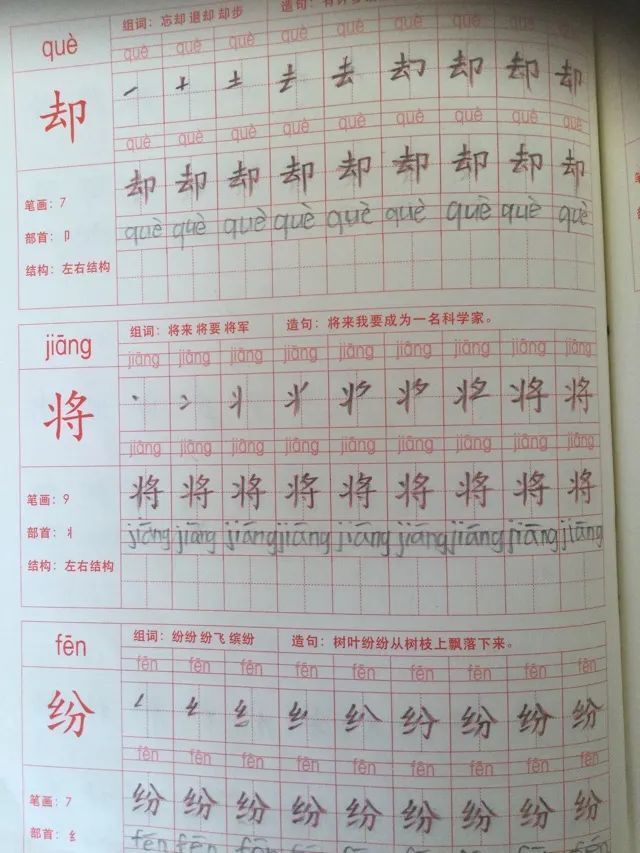 què 组词：忘却 退却 却步 造句：
què què què què què què què què què
却 却 却 却 却
què què què què què què què què què
却 却 却 却 却 却 却 却 却 却
笔画：7
què què què què què què què què què
部首：卩
结构：左右结构
jiāng 组词：将来 将要 将军 造句：将来我要成为一名科学家。
jiāng jiāng jiāng jiāng jiāng jiāng jiāng jiāng jiāng
将 将 将
jiāng jiāng jiāng jiāng jiāng jiāng jiāng jiāng jiāng
笔画：9 将 将 将 将 将 将 将 将 将
部首：丬 jiāng jiāng jiāng jiāng jiāng jiāng jiāng jiāng jiāng
结构：左右结构
fēn 组词：纷纷 纷飞 缤纷 造句：树叶纷纷从树枝上飘落下来。
fēn fēn fēn fēn fēn fēn fēn fēn fēn
纷 纷 纷 纷 纷
fēn fēn fēn fēn fēn fēn fēn fēn fēn
笔画：7 纷 纷 纷 纷 纷 纷 纷 纷 纷
部首：纟 fēn fēn fēn fēn fēn fēn fēn fēn fēn